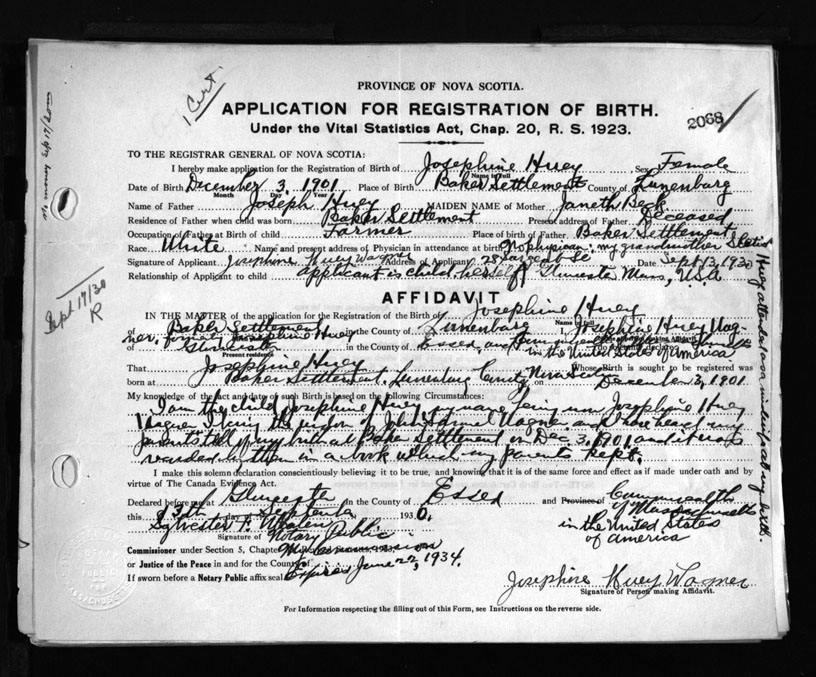 PROVINCE OF NOVA SCOTIA.
1 Cert
APPLICATION FOR REGISTRATION OF BIRTH.
2068
Under the Vital Statistics Act, Chap. 20, R. S. 1923.
TO THE REGISTRAR GENERAL OF NOVA SCOTIA:
I hereby make application for the Registration of Birth of Josephine Huey Sex Female
Name in Full
Date of Birth December 3, 1901 Place of Birth Baker Settlement County of Lunenburg
Month Day Year
Name of Father Joseph Huey MAIDEN NAME of Mother Janeth Beck
Residence of Father when child was born Baker Settlement Present address of Father Deceased
Occupation of Father at Birth of child Farmer Place of birth of Father Baker Settlement
Race White Name and present address of Physician in attendance at birth No physician; my grandmother
Huey attended as a midwife at my birth.
Signature of Applicant Josephine Huey Wagner Address of Applicant 28 Date Sept 13, 1930
Relationship of Applicant to child applicant is child herself Gloucester Mass, U.S.A
AFFIDAVIT
IN THE MATTER of the application for the Registration of the Birth of Josephine Huey
Name
of Baker Settlement in the County of Lunenburg Josephine Huey Wag-
ner, formerly Josephine Huey
of Gloucester in the County of Essex and Commonwealth of
Present residence
in the United States of America
That Josephine Huey Whose Birth is sought to be registered was
born at Baker Settlement, Lunenburg County, Nova Scotia on December 3, 1901
My knowledge of the fact and date of such Birth is based on the following Circumstances:
I am the child Josephine Huey, my name being now Josephine Huey
Wagner, I being the widow of John Wagner and I have heard my
parents tell of my birth at Baker Settlement on Dec. 3, 1901 and it was
recorded by them in a book which my parents kept.
I make this solemn declaration conscientiously believing it to be true, and knowing that it is of the same force and effect as if made under oath and by
virtue of The Canada Evidence Act.
Declared before me at Gloucester in the County of Essex and Province of Commonwealth
of Massachusetts
this 13th September 1930. in the United States
of America
Sylvester F. Whalen
Signature of Notary Public
Commissioner under Section 5, Chapter My commission
or Justice of the Peace in and for the County of Expires June 22, 1934.
If sworn before a Notary Public affix seal
Josephine Huey Wagner
Signature of Person making Affidavit.
For Information respecting the filling out of this Form, see Instructions on the reverse side.
Sept 17/30
R